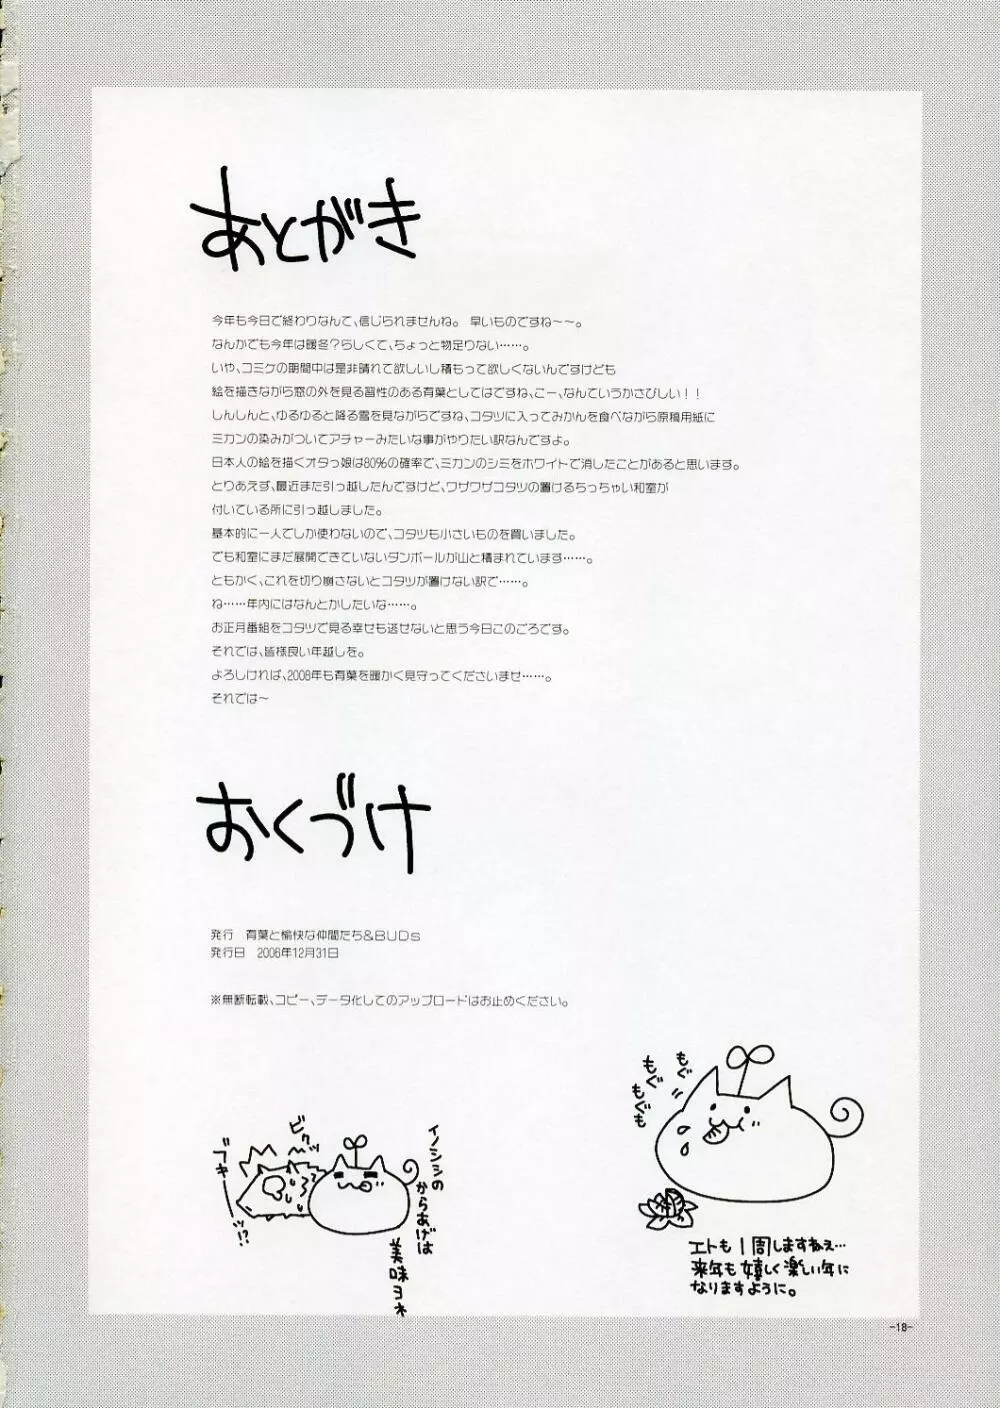 あとがき
今年も今日で終わりなんて、信じられませんね。 早いものですね～～。
なんかでも今年は暖冬?らしくて、ちょっと物足りない……。
いや、コミケの期間中は是非晴れて欲しいし積もって欲しくないんですけども
絵を描きながら窓の外を見る習性のある有葉としてはですね、こー、なんていうかさびしい！！
しんしんと、ゆるゆると降る雪を見ながらですね、コタツに入ってみかんを食べながら原稿用紙に
ミカンの染みがついてアチャーみたいな事がやりたい訳なんですよ。
日本人の絵を描くオタっ娘は80%の確率で、ミカンのシミをホワイトで消したことがあると思います。
とりあえず、最近また引っ越したんですけど、ワザワザコタツの置けるちっちゃい和室が
付いている所に引っ越しました。
基本的に一人でしか使わないので、コタツも小さいものを買いました。
でも和室にまだ展開できていないダンボールが山と積まれています……。
ともかく、これを切り崩さないとコタツが置けない訳で……。
ね……年内にはなんとかしたいな……。
お正月番組をコタツで見る幸せも逃せないと思う今日このごろです。
それでは、皆様良い年越しを。
よろしければ、2008年も有葉を暖かく見守ってくださいませ……。
それでは～
おくづけ
発行 有葉と愉快な仲間たち&BUDs
発行日 2006年12月31日
※無断転載、コピー、データ化してのアップロードはお止めください。
もぐ
もぐ
もぐも
ビクッ
ブキーッ!?
イノシシの
からあげは
美味ヨネ
エトも1周しますねぇ…
来年も嬉しく楽しい年に
なりますように。
-18-